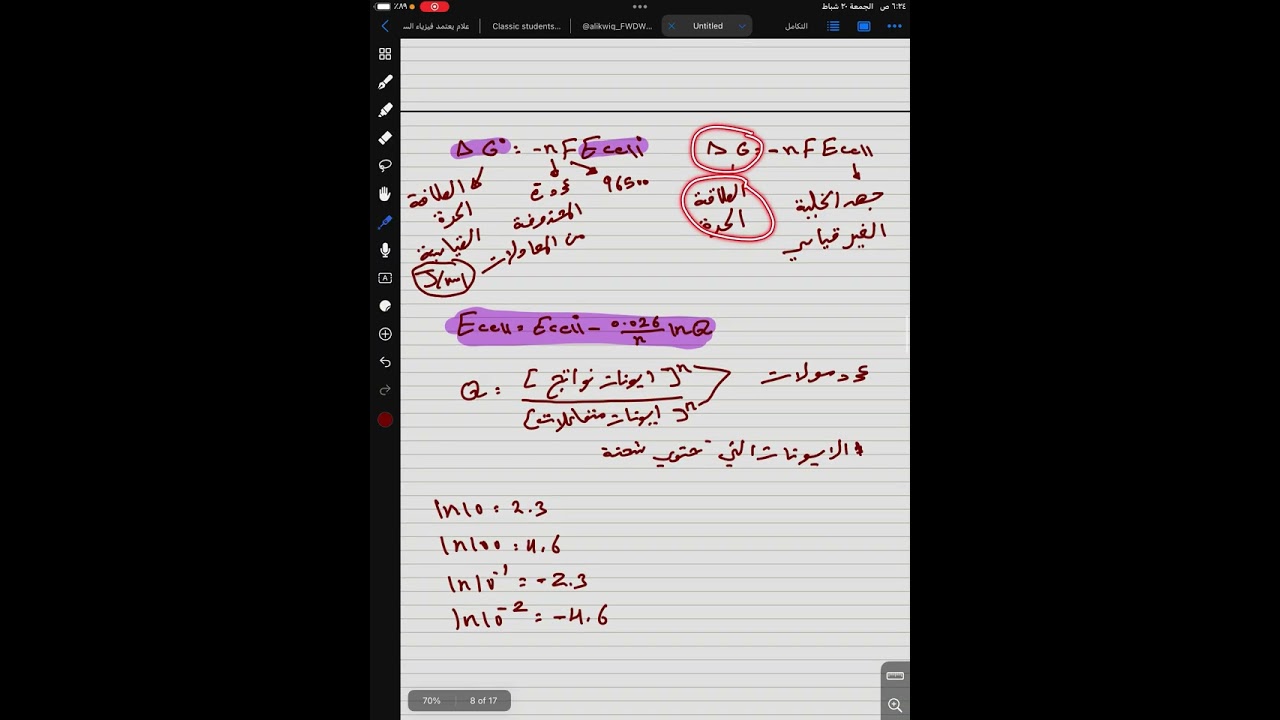 ٦:٢٤ ص الجمعة ٢٠ شباط
٪٨٩
علام يعتمد فيزياء الس
Classic students...
@alikwiq_FWDW...
Untitled
التكامل
ΔG° = -nF E°cell
ΔG = -nF Ecell
الطاقة الحرة القياسية
J/mol
عدد e المحذوفة من المعادلات
96500
الطاقة الحرة
جهد الخلية الغير قياسي
Ecell = E°cell - 0.026/n lnQ
Q = [ايونات نواتج]ⁿ / [ايونات متفاعلات]ⁿ
عدد مولات
الايونات التي تحتوي شحنة
ln10 = 2.3
ln100 = 4.6
ln10⁻¹ = -2.3
ln10⁻² = -4.6
70%
8 of 17